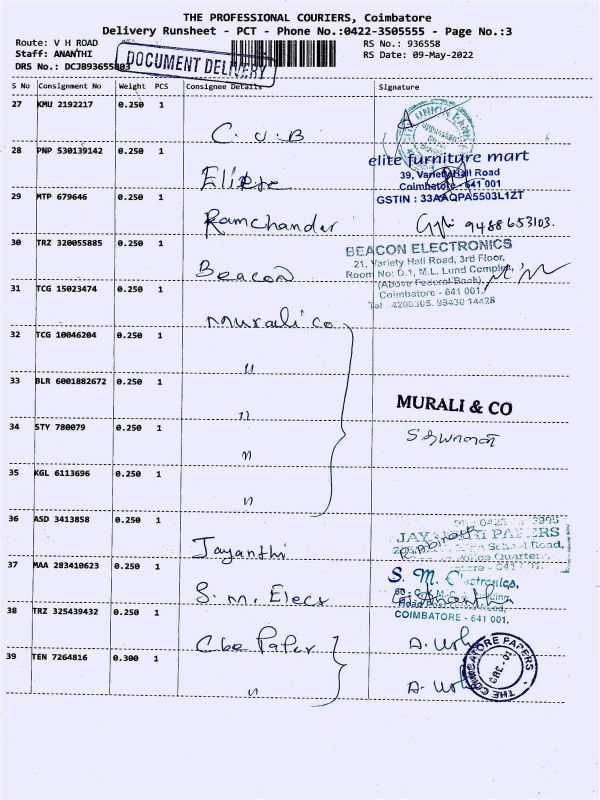 THE PROFESSIONAL COURIERS, Coimbatore
Delivery Runsheet - PCT - Phone No.:0422-3505555 - Page No.:3
Route: V H ROAD
RS No.: 936558
Staff: ANANTHI
RS Date: 09-May-2022
DRS No.: DCJB93655803
DOCUMENT DELIVERY
S No Consignment No Weight PCS Consignee Details Signature
27 KMU 2192217 0.250 1 C.U.B
UNION BANK
28 PNP 530139142 0.250 1
elite furniture mart
39, Variety Hall Road
Coimbatore - 641 001
GSTIN : 33AAQPA5503L1ZT
29 MTP 679646 0.250 1 Ramchander
9488653103.
30 TRZ 320055885 0.250 1 Beacon
BEACON ELECTRONICS
21, Variety Hall Road, 3rd Floor,
Room No: D.1, M.L. Lund Complex,
(Above Federal Bank)
Coimbatore - 641 001.
Tel : 4206305. 98430 14428
31 TCG 15023474 0.250 1 Murali co
32 TCG 10046204 0.250 1 "
33 BLR 6001882672 0.250 1 "
MURALI & CO
34 STY 780079 0.250 1 "
35 KGL 6113696 0.250 1 "
36 ASD 3413858 0.250 1 Jayanthi
37 MAA 283410623 0.250 1 S.M. Elecs
COIMBATORE - 641 001.
38 TRZ 325439432 0.250 1 Cbe Paper
39 TEN 7264816 0.300 1 "
THE COIMBATORE PAPERS